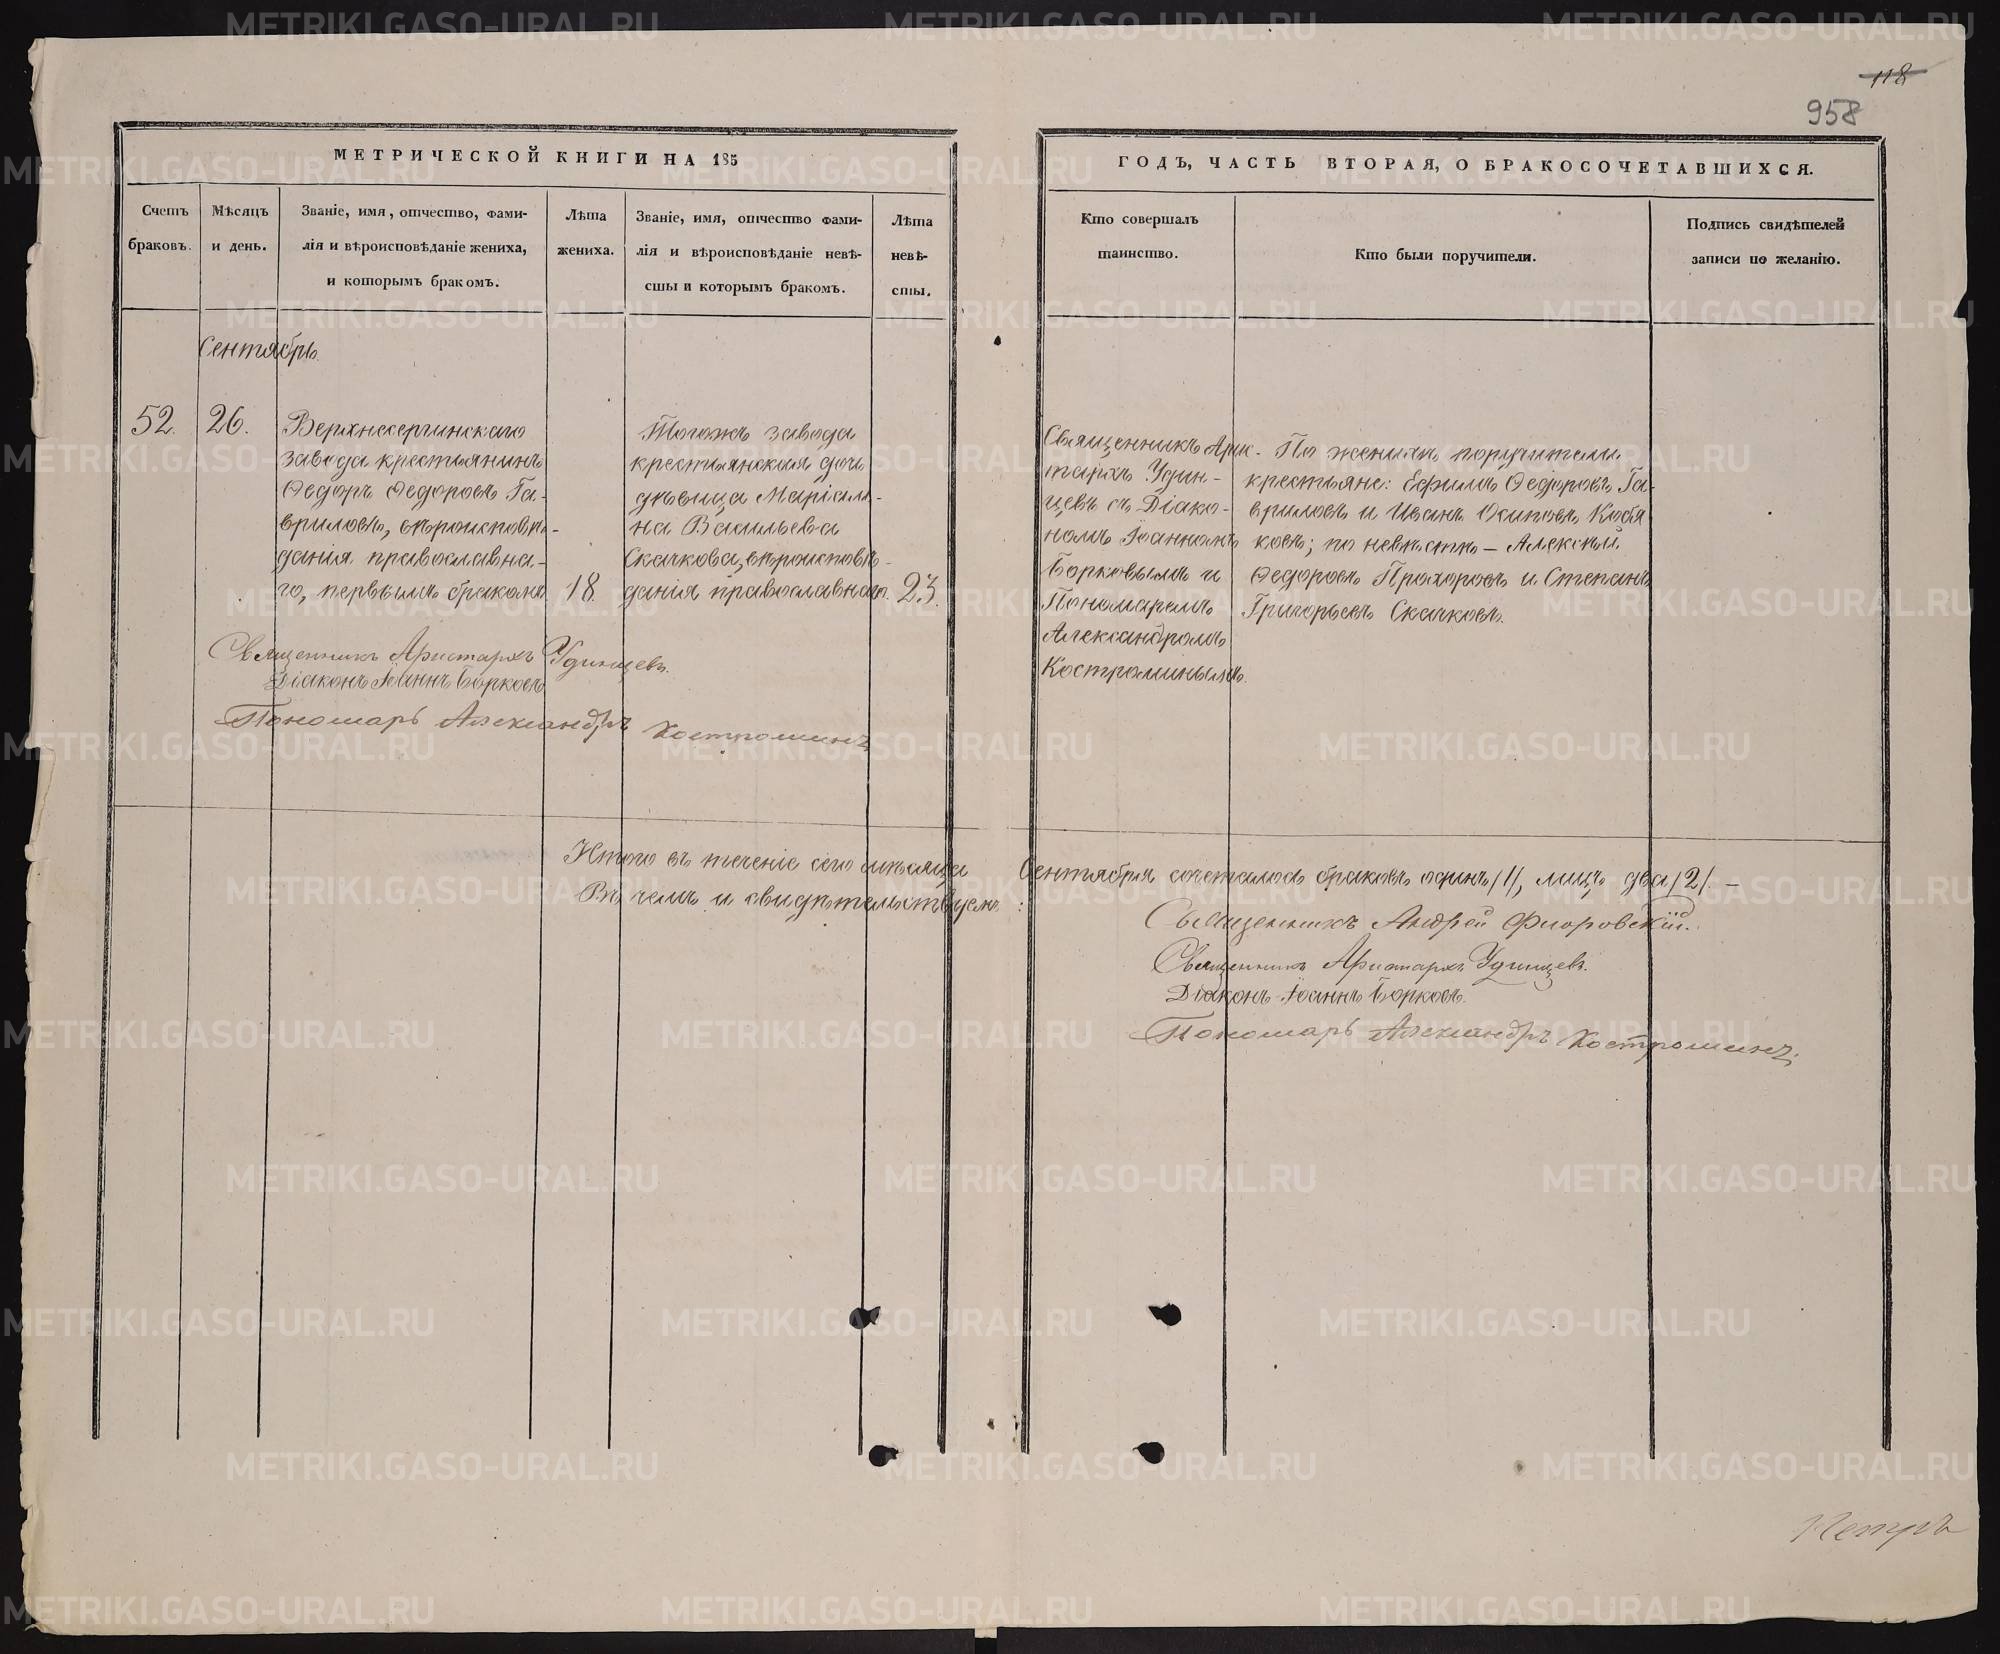 118
958
МЕТРИЧЕСКОЙ КНИГИ НА 185
ГОДЪ, ЧАСТЬ ВТОРАЯ, О БРАКОСОЧЕТАВШИХСЯ.
Счетъ
браковъ.
Мѣсяцъ
и день.
Званіе, имя, отчество, фами-
лія и вѣроисповѣданіе жениха,
и которымъ бракомъ.
Лѣта
жениха.
Званіе, имя, отчество фами-
лія и вѣроисповѣданіе невѣ-
сты и которымъ бракомъ.
Лѣта
невѣ-
сты.
Кто совершалъ
таинство.
Кто были поручители.
Подпись свидѣтелей
записи по желанію.
Сентябрь.
52.
26.
Верхнесергинскаго
завода крестьянинъ
Ѳедоръ Ѳедоровъ Га-
вриловъ, вѣроисповѣ-
данія православна-
го, первымъ бракомъ
18.
Тогожъ завода
крестьянская дочь
дѣвица Маріам-
на Васильева
Скачкова, вѣроисповѣ-
данія православнаго.
23.
Священникъ Арис-
тархъ Удин-
цевъ съ Діако-
номъ Іоанномъ
Борковымъ и
Пономаремъ
Александромъ
Костроминымъ.
По женихѣ поручители
крестьяне: Ефимъ Ѳедоровъ Га-
вриловъ и Иванъ Осиповъ Кобя
ковъ; по невѣстѣ – Алексѣй
Ѳедоровъ Прохоровъ и Степанъ
Григорьевъ Скачковъ.
Священникъ Аристархъ Удинцевъ.
Діаконъ Іоаннъ Борковъ
Пономарь Александръ Костроминъ
Итого въ теченіе сего мѣсяца Сентября сочеталось браковъ одинъ /1/, лицъ два /2/. –
Въ чемъ и свидѣтельствуемъ:
Священникъ Андрей Флоровскій.
Священникъ Аристархъ Удинцевъ.
Діаконъ Іоаннъ Борковъ.
Пономарь Александръ Костроминъ.
Петръ
METRIKI.GASO-URAL.RU